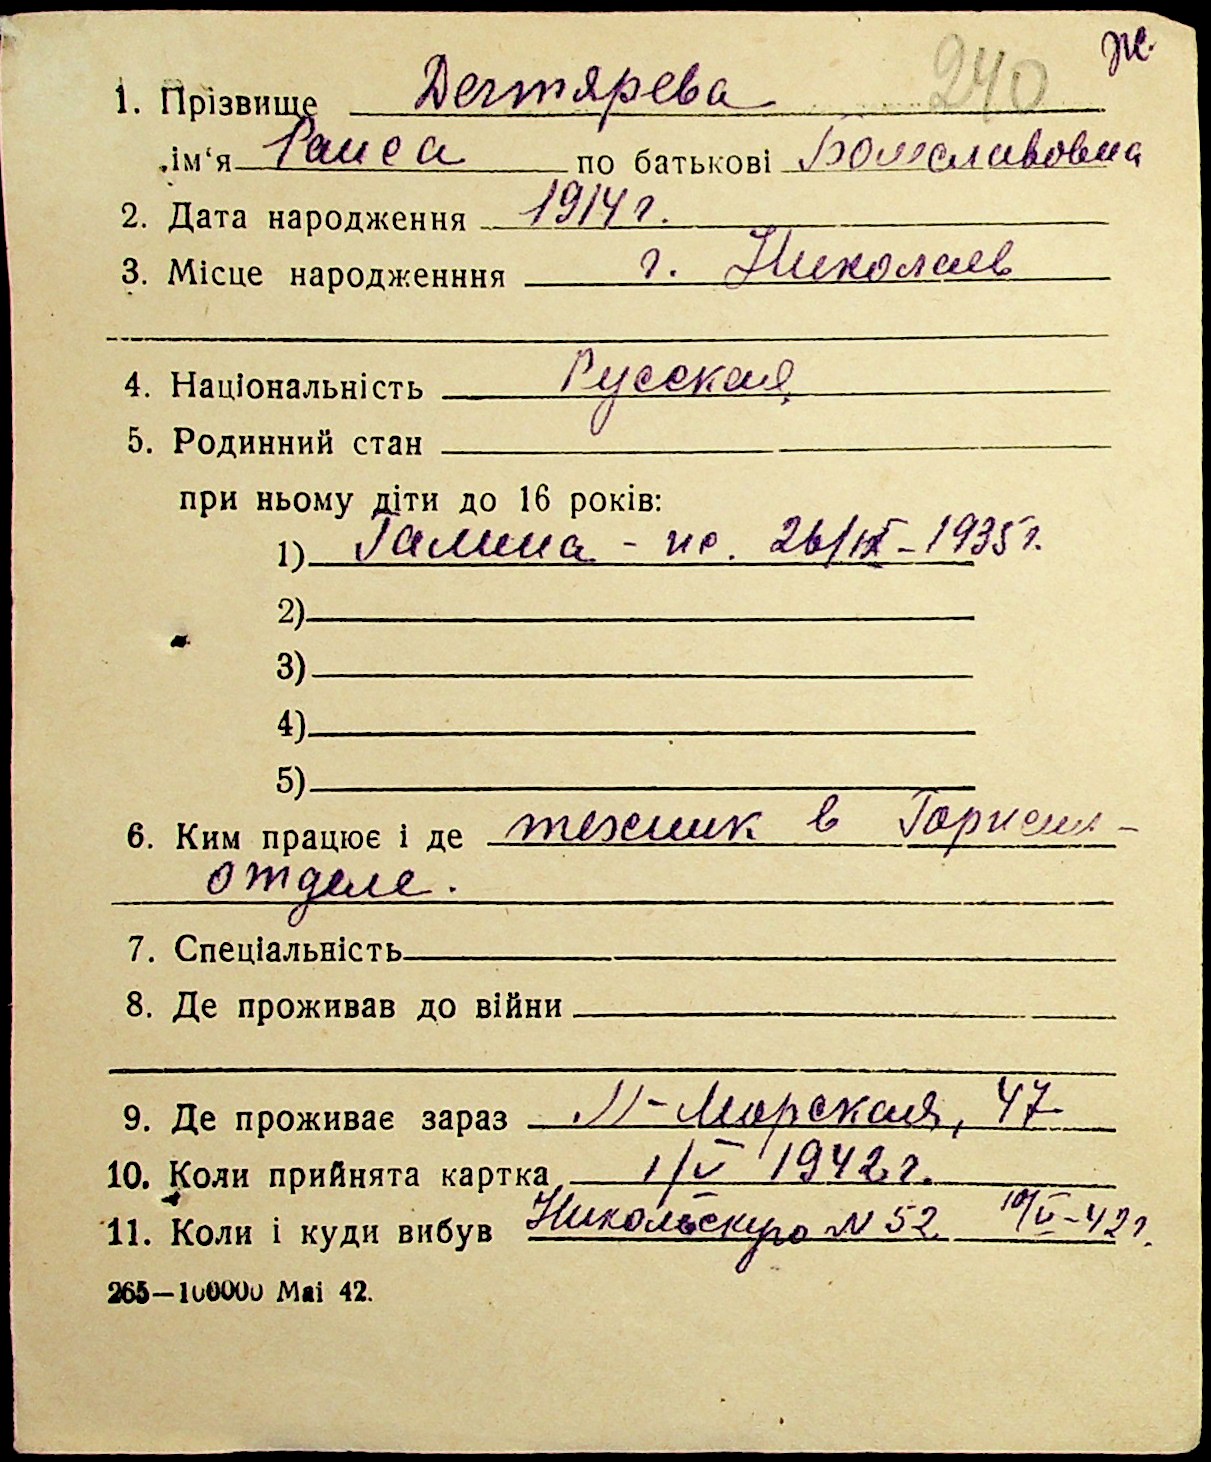 ж.
240
1. Прізвище Дегтярева
ім'я Раиса по батькові Болеславовна
2. Дата народження 1914 г.
3. Місце народженння г. Николаев
4. Національність Русская
5. Родинний стан
при ньому діти до 16 років:
1) Галина - 26/IX - 1935 г.
2)
3)
4)
5)
6. Ким працює і де техник в
отделе.
7. Спеціальність
8. Де проживав до війни
9. Де проживає зараз Морская, 47
10. Коли прийнята картка 1/V 1942 г.
11. Коли і куди вибув Никольскую N 52 19/V-42 г.
265—100000 Маі 42.